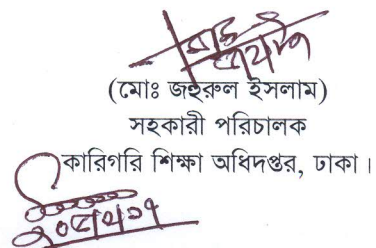 (মোঃ জহুরুল ইসলাম)
সহকারী পরিচালক
কারিগরি শিক্ষা অধিদপ্তর, ঢাকা।